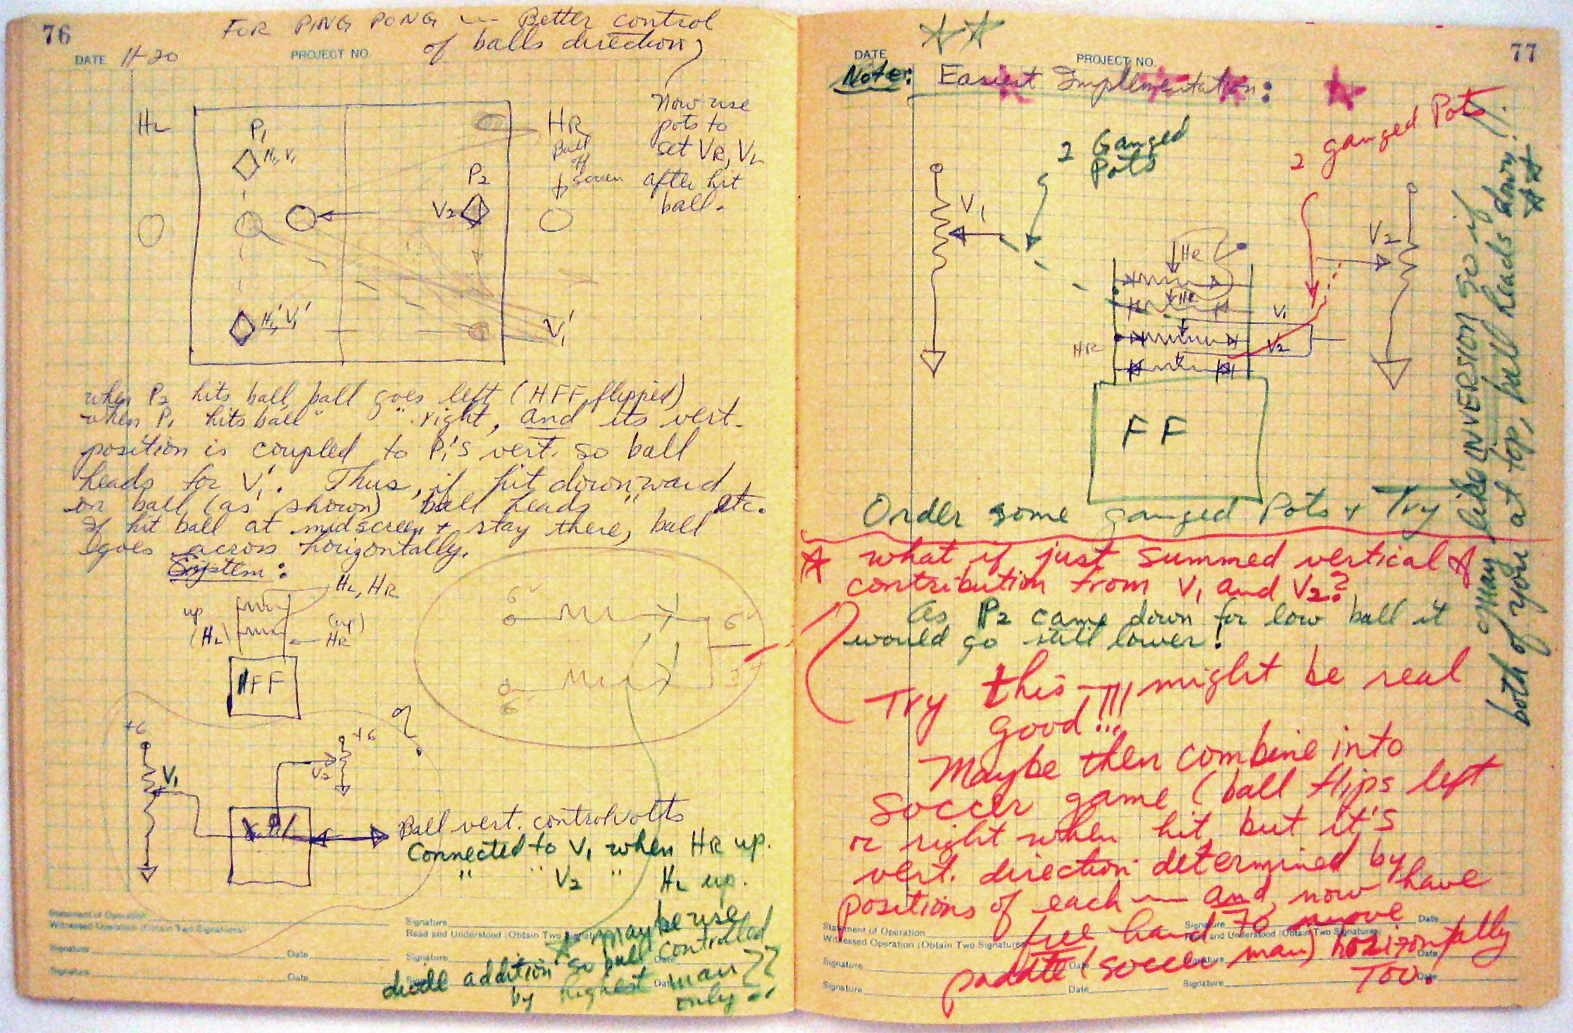 76
DATE 11-20
PROJECT NO.
FOR PING PONG — Better control
of balls direction
Now use
pots to
set VR, VL
after hit
ball.
HL
P1
H1, V1
HR
Ball
off
screen
P2
V2
H1' V1'
V1'
when P2 hits ball, ball goes left (HFF flipped)
when P1 hits ball " " right, and its vert.
position is coupled to P1's vert. so ball
heads for V1'. Thus, if hit downward
on ball (as shown) ball heads " etc.
If hit ball at midscreen + stay there, ball
goes across horizontally.
System:
HL, HR
up
(HL)
(up)
HR
HFF
6
6
6
3
+6
V1
+6
V2
?
Ball vert. control volts
Connected to V1 when HR up.
" " V2 " HL up.
maybe use
diode addition so ball controlled
by highest man
only
??
Statement of Operation
Witnessed Operation (Obtain Two Signatures)
Signature
Read and Understood (Obtain Two Signatures)
Signature Date
Signature Date
77
DATE
PROJECT NO.
Note: Easiest Implementation:
2 Ganged
Pots
2 ganged Pots
V1
V2
HR
HR
V1
V2
HR
FF
Order some ganged Pots + Try
may like INVERSION so if
both of you at top, ball heads down!!
what if just summed vertical
contribution from V1 and V2?
As P2 came down for low ball it
would go still lower!
Try this — !!! might be real
good!!!
Maybe then combine into
soccer game (ball flips left
or right when hit, but it's
vert. direction determined by
positions of each — and, now have
free hand to move
paddle (soccer man) horizontally
Too.
Statement of Operation
Witnessed Operation (Obtain Two Signatures)
Signature Date
Read and Understood (Obtain Two Signatures)
Signature Date
Signature Date
Signature